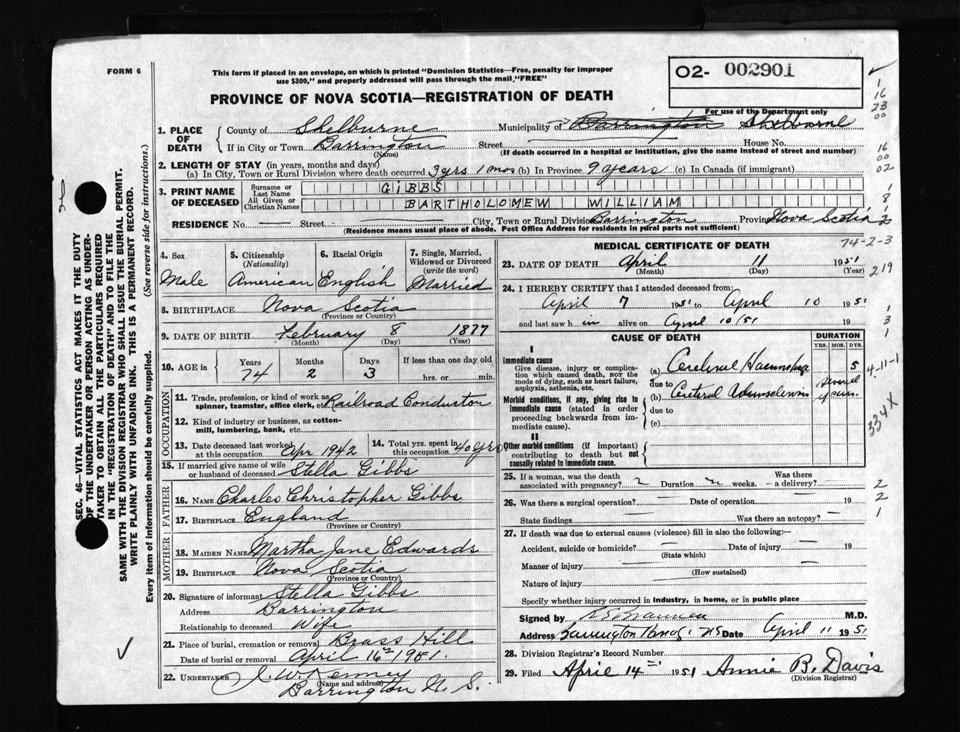 FORM 6
This form if placed in an envelope, on which is printed "Dominion Statistics—Free, penalty for improper
use $300," and properly addressed will pass through the mail, "FREE"
02- 002901
PROVINCE OF NOVA SCOTIA—REGISTRATION OF DEATH
For use of the Department only
1. PLACE OF DEATH
County of Shelburne Municipality of Barrington Shelburne
If in City or Town Barrington Street House No.
(Name)
(If death occurred in a hospital or institution, give the name instead of street and number)
2. LENGTH OF STAY (in years, months and days)
(a) In City, Town or Rural Division where death occurred 3 yrs 1 mos (b) In Province 9 years (c) In Canada (if immigrant)
3. PRINT NAME OF DECEASED
Surname or Last Name GIBBS
All Given or Christian Names BARTHOLOMEW WILLIAM
RESIDENCE No. Street City, Town or Rural Division Barrington Province Nova Scotia
(Residence means usual place of abode. Post Office Address for residents in rural parts not sufficient)
4. Sex
Male
5. Citizenship
(Nationality)
American
6. Racial Origin
English
7. Single, Married,
Widowed or Divorced
(write the word)
Married
8. BIRTHPLACE Nova Scotia
(Province or Country)
9. DATE OF BIRTH February 8 1877
(Month) (Day) (Year)
10. AGE in
Years Months Days If less than one day old
74 2 3 hrs. or min.
OCCUPATION
11. Trade, profession, or kind of work as
spinner, teamster, office clerk, etc. Railroad Conductor
12. Kind of industry or business, as cotton-
mill, lumbering, bank, etc.
13. Date deceased last worked
at this occupation Apr 1942
14. Total yrs. spent in
this occupation 40 yrs
15. If married give name of wife
or husband of deceased Stella Gibbs
FATHER
16. NAME Charles Christopher Gibbs
17. BIRTHPLACE England
(Province or Country)
MOTHER
18. MAIDEN NAME Martha Jane Edwards
19. BIRTHPLACE Nova Scotia
(Province or Country)
20. Signature of informant Stella Gibbs
Address Barrington
Relationship to deceased Wife
21. Place of burial, cremation or removal Brass Hill
Date of burial or removal April 16th 1951.
22. UNDERTAKER J. W. Kenney
Barrington N. S.
(Name and Address)
MEDICAL CERTIFICATE OF DEATH
23. DATE OF DEATH April 11 1951
(Month) (Day) (Year)
24. I HEREBY CERTIFY that I attended deceased from:
April 7 1951 to April 10 1951
and last saw him alive on April 10/51 19
CAUSE OF DEATH
DURATION
YRS. MOS. DYS.
I
Immediate cause
Give disease, injury or complica-
tion which caused death, NOT the
mode of dying, such as heart failure,
asphyxia, asthenia, etc.
(a) Cerebral Haemorrhage 5
due to
Morbid conditions, if any, giving rise to
immediate cause (stated in order
proceeding backwards from im-
mediate cause).
(b) Cerebral several years
due to
(c)
II
Other morbid conditions (if important)
contributing to death but not
causally related to immediate cause.
25. If a woman, was the death
associated with pregnancy? Duration weeks.
Was there
a delivery?
26. Was there a surgical operation? Date of operation 19
State findings Was there an autopsy?
27. If death was due to external causes (violence) fill in also the following:
Accident, suicide or homicide? Date of injury 19
(State which)
Manner of injury
(How sustained)
Nature of injury
Specify whether injury occurred in industry, in home, or in public place
Signed by M.D.
Address Barrington N S Date April 11 1951
28. Division Registrar's Record Number
29. Filed April 14th 1951 Annie B. Davis
(Division Registrar)
SEC. 46—VITAL STATISTICS ACT MAKES IT THE DUTY
OF THE UNDERTAKER OR PERSON ACTING AS UNDER-
TAKER TO OBTAIN ALL THE PARTICULARS REQUIRED
IN THE "REGISTRATION OF DEATH" AND TO FILE THE
SAME WITH THE DIVISION REGISTRAR WHO SHALL ISSUE THE BURIAL PERMIT.
WRITE PLAINLY WITH UNFADING INK. THIS IS A PERMANENT RECORD.
Every item of information should be carefully supplied. (See reverse side for instructions.)
1
16
23
00
16
00
02
1
8
1
2
74-2-3
219
1
3
1
4-11-1
334X
2
2
1